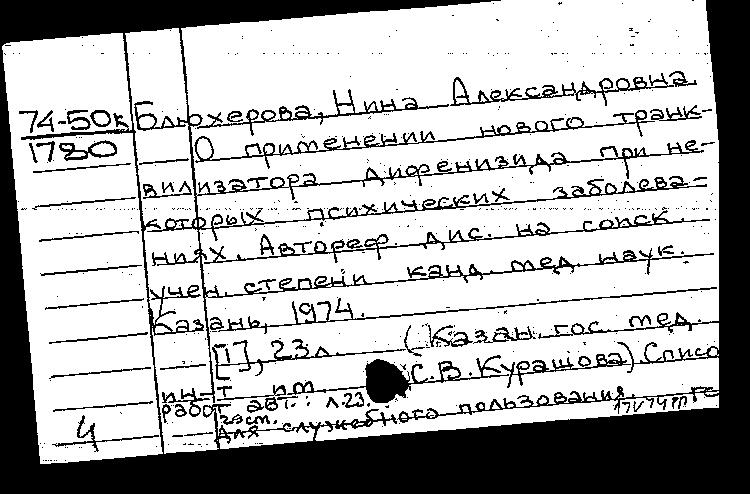 74-50к Блюхерова, Нина Александровна
1780 О применении нового транк-
вилизатора дифенизида при не-
которых психических заболева-
ниях. Автореф. дис. на соиск.
учен. степени канд. мед. наук.
Казань, 1974.
[1], 23 л. (Казан. гос. мед.
ин-т им. С.В. Курашова) Списо
работ авт.: л. 23.
4 Для служебного пользования.